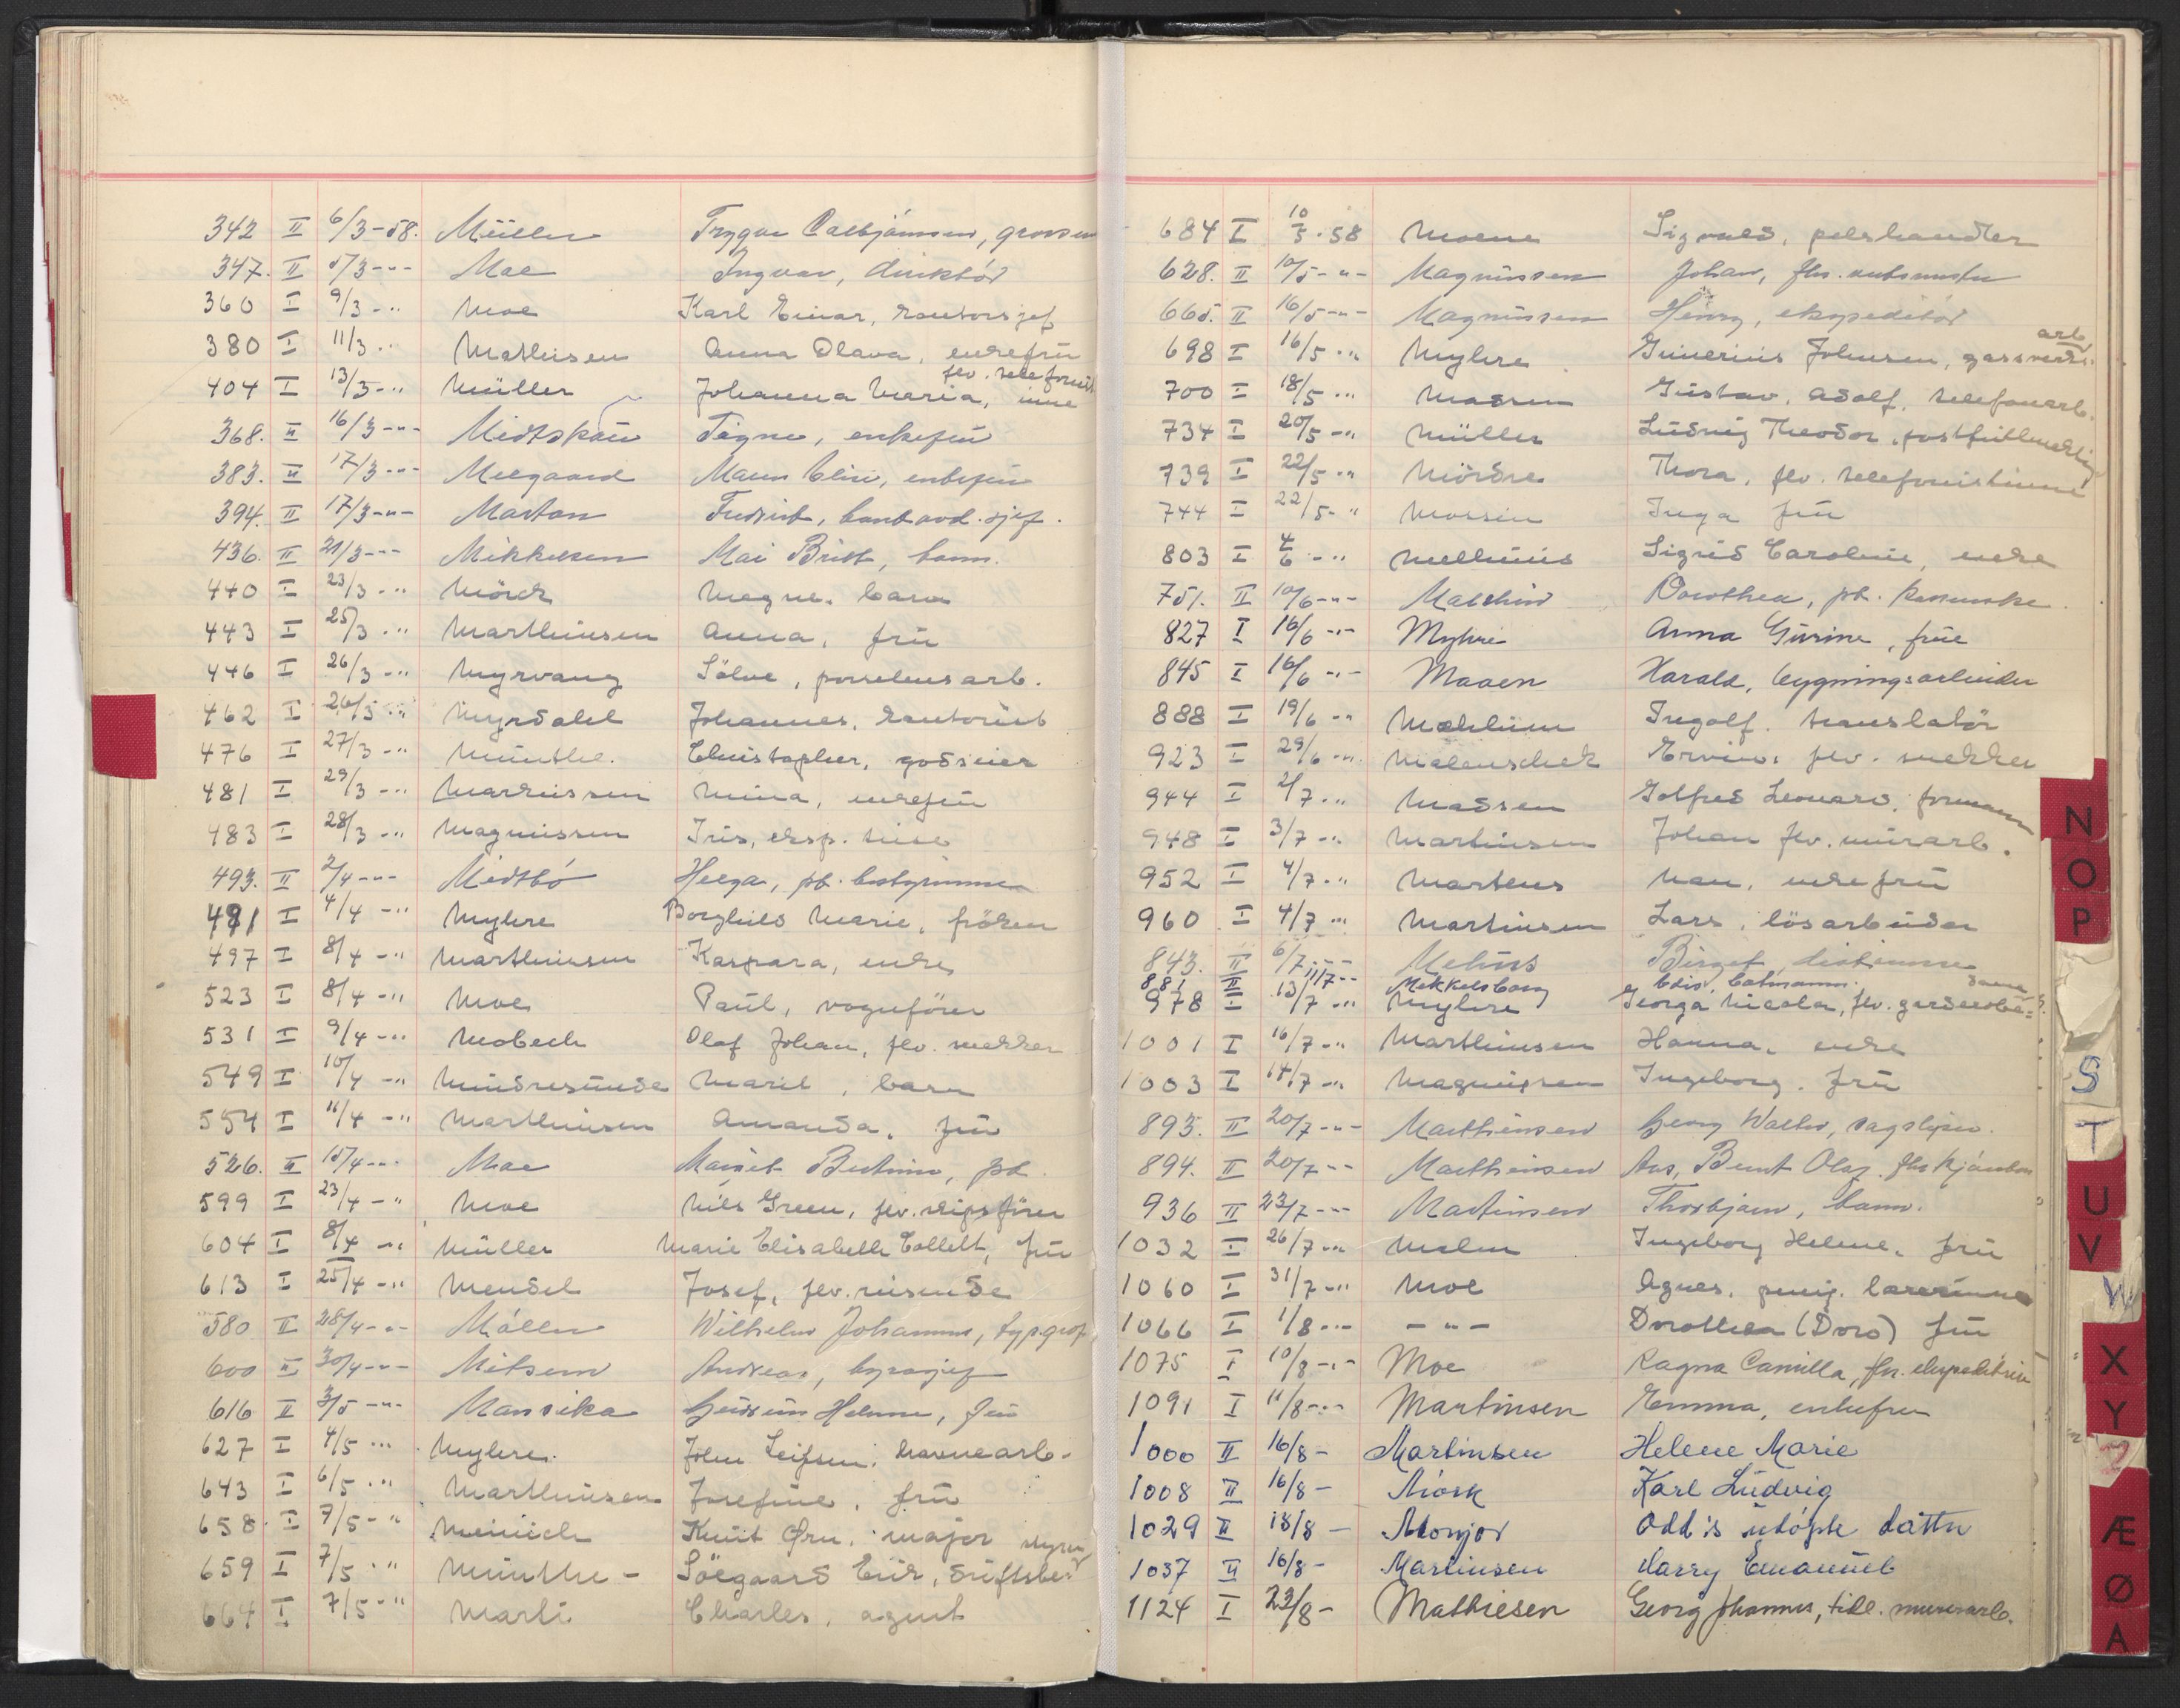 342 II 6/3-58. Müller Trygve Calbjørnsen, grosserer
347. II 8/3-"- Moe Ingvar, direktör
360 I 9/3-" Moe Karl Einar, kontorsjef
380 I 11/3 " Mathisen Anna Olava, enkefrü
404 I 13/3-" Müller Johanna Maria, flv. telefonistinne
368. II 16/3-"- Midtskau Signe, enkefrü
383. II 17/3-"- Melgaard Maren Elise, enkefrü
394. II 17/3-"- Morton Fredrik, bankavd.sjef.
436. II 21/3-"- Mikkelsen Mai Britt, barn.
440 I 23/3-" Mörck Magne, barn
443 I 25/3-" Marthinsen Anna, frü
446 I 26/3-" Myrvang Sölve, porselensarb.
462 I 26/3-" Myrdahl Johannes, kontorist
476 I 27/3-" Münthe. Christopher, godseier
481 I 29/3-" Markussen Mina, enkefrü
483 I 28/3-" Magnussen Iris, eksp. trise
493. II 2/4-"- Midtbö Helga, pt. bestyrerinne
491 I 4/4-" Myhre Borghild Marie, fröken
497 I 8/4-" Marthinsen Kaspara, enke
523 I 8/4-" Moe Paul, vognförer
531 I 9/4-" Mobech Olaf Johan, flv. snekker
549 I 10/4-" Mündresünde Marit, barn
554 I 11/4-" Marthinsen Amanda, frü
526. II 15/4-"- Moe Marit, pt.
599 I 23/4-" Moe Nils Green, flv. skipsförer
604 I 8/4-" Müller Marie Elisabeth Collett, frü
613 I 25/4-" Mendel Josef, flv. reisende
580 II 28/4-"- Möller Wilhelm Johannes, typograf
600 II 30/4-"- Mitsem Andreas, byråsjef
616 II 3/5-"- Mansika Güdrün Helene, frü
627 I 4/5-" Myhre. John Leifsen, havnearb.
643 I 6/5-" Marthinsen Josefine, frü
658 I 7/5-" Meinich Knüt Ørn, major
659 I 7/5-" Münthe- Söegaard Erik, driftsbestyrer
664 I 7/5-" Marti Charles, agent
684 I 10/5-58 Moene Sigvald, pelshandler
628. II 10/5-"- Magnüssen Johan, fhv.
665. II 16/5-"- Magnüssen Henry, ekspeditör
698 I 16/5-" Myhre Günerius Johnsen, gassverksarb.
700 I 18/5-" Madsen Gustav Adolf, telefonarb.
734 I 20/5-" Müller Ludvig Theodor, postfullmektig
739 I 22/5-" Mördre Thora, flv. telefonistinne
744 I 22/5-" Mossin Inga frü
803 I 4/6-" Mellenius Sigrid Caroline, enke
751. II 10/6-"- Malchin Dorothea, pt.
827 I 16/6-"- Myhre Anna Gurine, frue
845 I 16/6-"- Maaen Harald, bygningsarbeider
888 I 19/6-" Mæhlüm Ingolf. translatör
923 I 29/6-" Malenschek Erwin, flv. snekker
944 I 2/7-" Madsen Golfred Leonard, formann
948 I 3/7-" Martinsen Johan flv. mürarb.
952 I 4/7-" Martens Nan, enkefrü
960 I 4/7-" Martinsen Lars, lösarbeider
843. II 6/7-"- Mehüs Birgit,
881 II 11/7-"- Mekkelsborg Edis,
978 I 13/7-" Myhre Georga Nicola, flv. garderobedame
1001 I 16/7-" Marthinsen Hanna, enke
1003 I 14/7-" Magnüssen Ingeborg. frü
893. II 20/7-"- Marthinsen Georg Walter, sagsliper.
894. II 20/7-"- Marthinsen Ans, Bernt Olaf. fhv.
936 II 23/7-"- Martinsen Thorbjørn, barn.
1032 I 26/7-" Malm Ingeborg Helene, frü
1060 I 31/7-" Moe Agnes, pensj. lærerinne
1066 I 1/8-" -"- Dorothea (Doro) frü
1075 I 10/8-"- Moe Ragna Camilla, fhv. ekspeditrise
1091 I 11/8-"- Martinsen Emma, enkefru
1000 II 16/8- Martinsen Helene Marie
1008 II 16/8- Mörk Karl Lüdvig
1029 II 18/8- Monjor Odd's udöpte datter
1037 II 16/8- Martinsen Harry Emanuel
1124 I 23/8- Mathiesen Georg Johannes, tidl. murerarb.
N
O
P
S
T
U
V
W
X
Y
Z
Æ
Ø
A